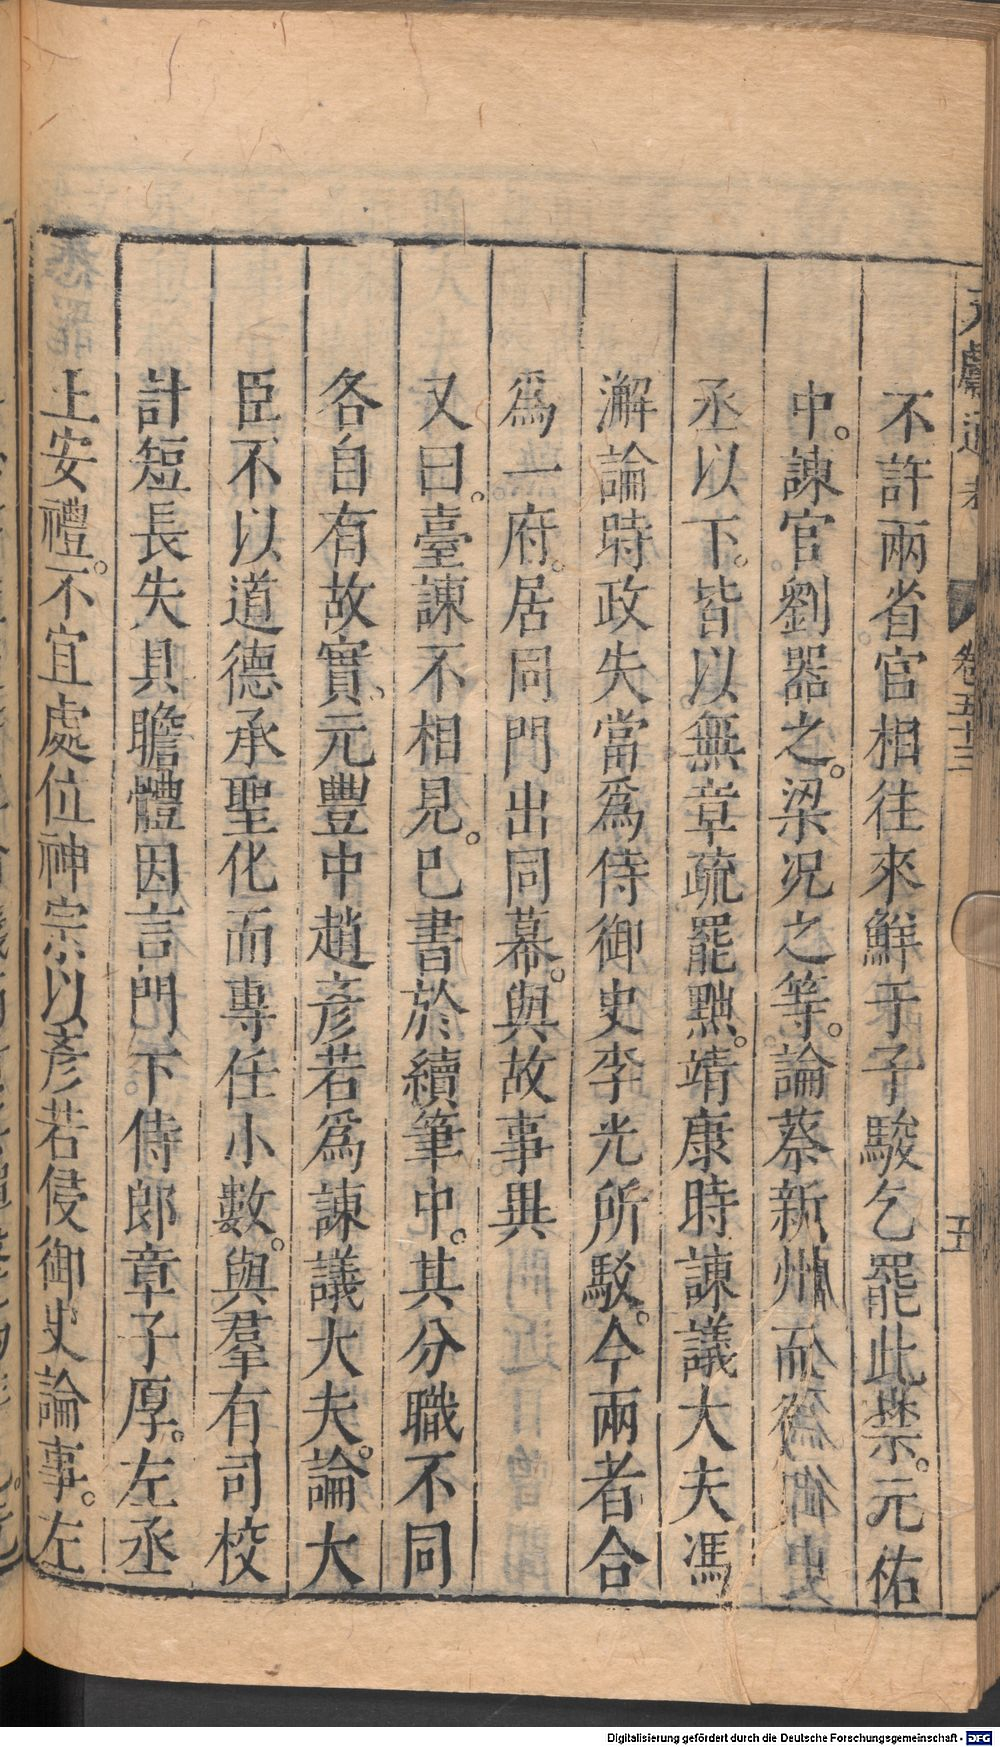 不許兩省官相往來鮮于子駿乞罷此禁。元佑
中。諫官劉器之。梁况之等。論蔡新州而御史
丞以下。皆以無章疏罷黜。靖康時諫議大夫馮
澥論時政失當爲侍御史李光所駁。今兩者合
爲一府。居同門出同幕。與故事異
又曰。臺諫不相見。已書於續筆中。其分職不同
各自有故實。元豐中趙彥若爲諫議大夫。論大
臣不以道德承聖化而專任小數。與羣有司校
計短長失具瞻體因言門下侍郎章子厚。左丞
王安禮。不宜處位神宗以彥若侵御史論事。左
卷五十三
五
Digitalisierung gefördert durch die Deutsche Forschungsgemeinschaft - DFG